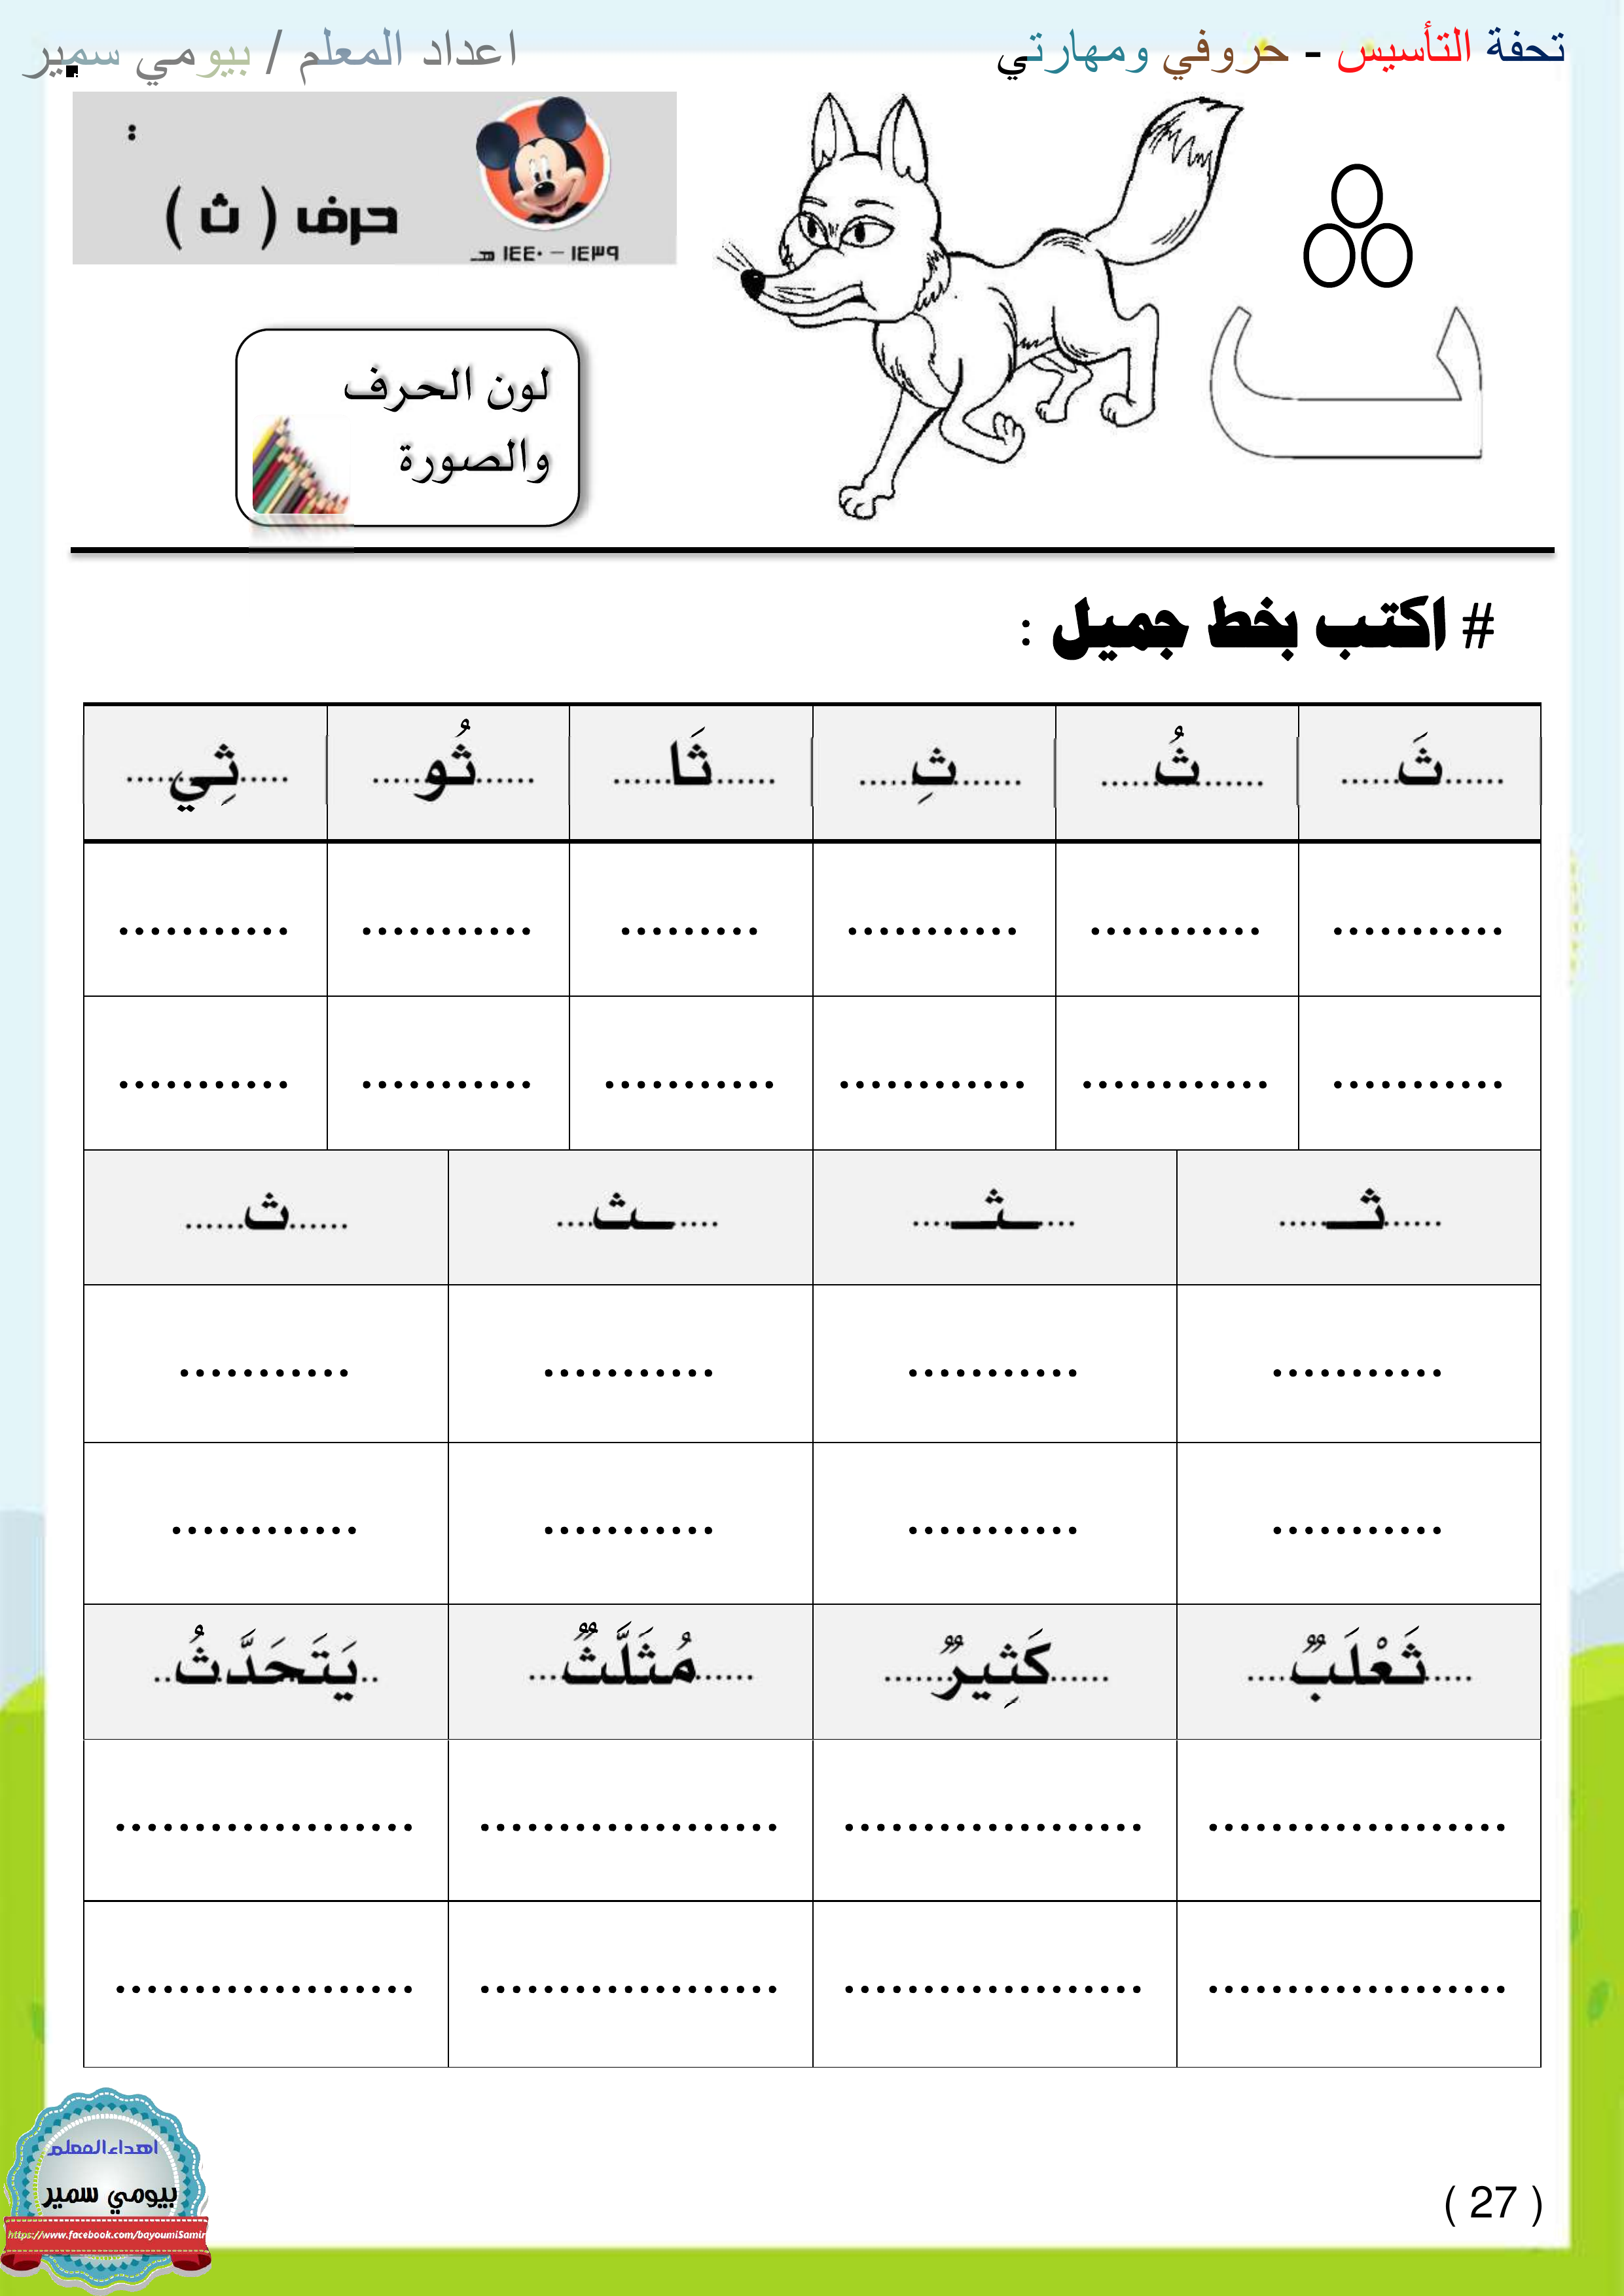 تحفة التأسيس - حروفي ومهارتي
اعداد المعلم / بيومي سمير
:
حرف ( ث )
١٤٣٩ – ١٤٤٠ هـ
ث
لون الحرف
والصورة
# اكتب بخط جميل :
......ثَ...... ......ثُ...... ......ثِ...... ......ثَا...... ......ثُو...... ......ثِي......
........... ........... ........... ......... ........... ...........
........... ............ ............ ........... ........... ...........
......ثـ..... ....ـثـ.... ....ـث.... ......ث......
........... ........... ........... ...........
........... ........... ........... ............
.....ثَعْلَبٌ.... ......كَثِيرٌ...... ......مُثَلَّثٌ... ..يَتَحَدَّثُ..
................... ................... ................... ...................
................... ................... ................... ...................
اهداء المعلم
بيومي سمير
https://www.facebook.com/bayoumiSamir
( 27 )